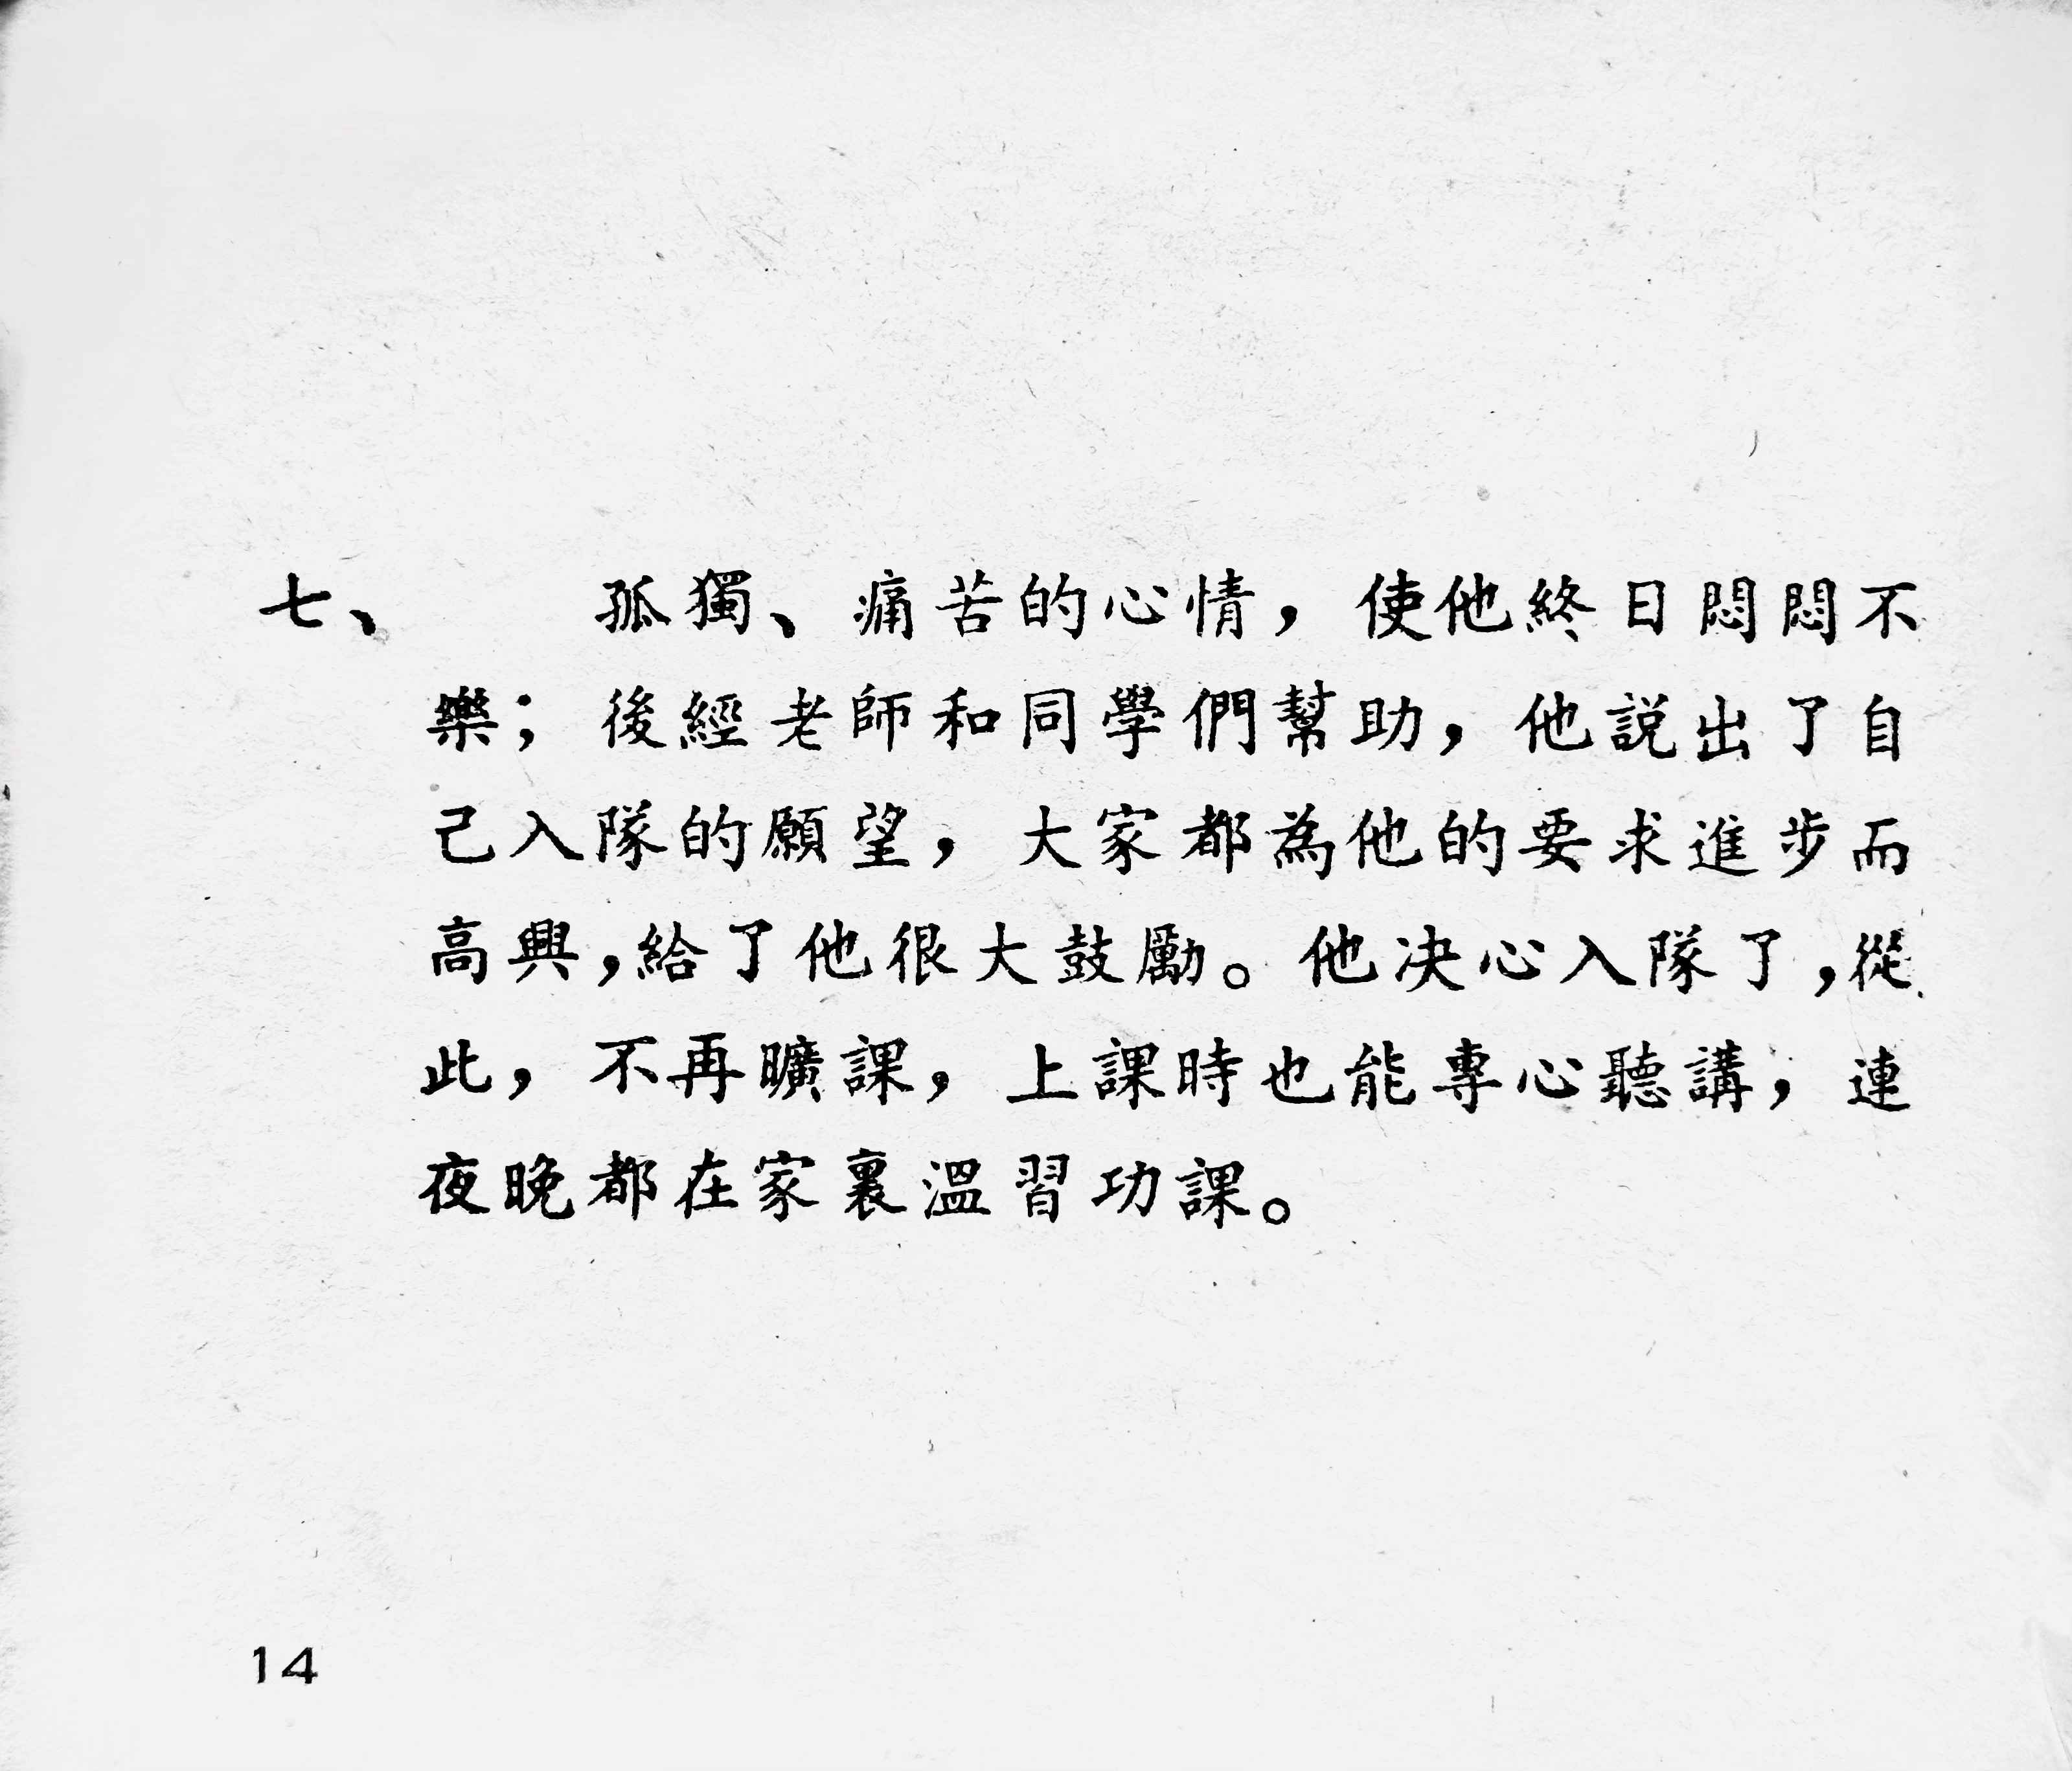 七、 孤獨、痛苦的心情，使他終日悶悶不
樂；後經老師和同學們幫助，他説出了自
己入隊的願望，大家都為他的要求進步而
高興，給了他很大鼓勵。他决心入隊了，從
此，不再曠課，上課時也能專心聽講，連
夜晚都在家裏溫習功課。
14